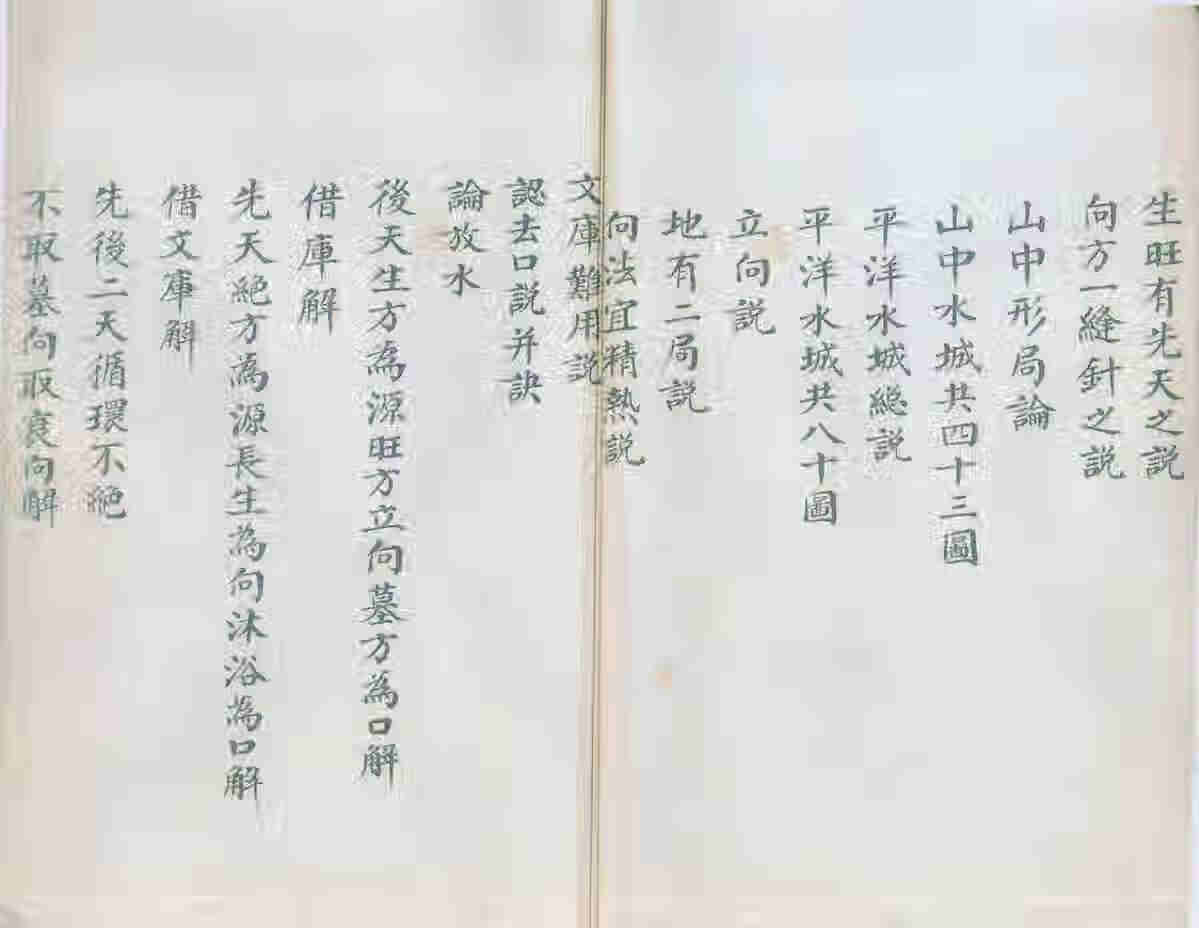 生旺有先天之説
向方一縫針之説
山中形局論
山中水城共四十三圖
平洋水城總説
平洋水城共八十圖
立向説
地有二局説
向法宜精熟説
文庫難用説
認去口説并訣
論放水
後天生方為源旺方立向墓方為口解
借庫解
先天絕方為源長生為向沐浴為口解
借文庫解
先後二天循環不絕
不取墓向取衰向解